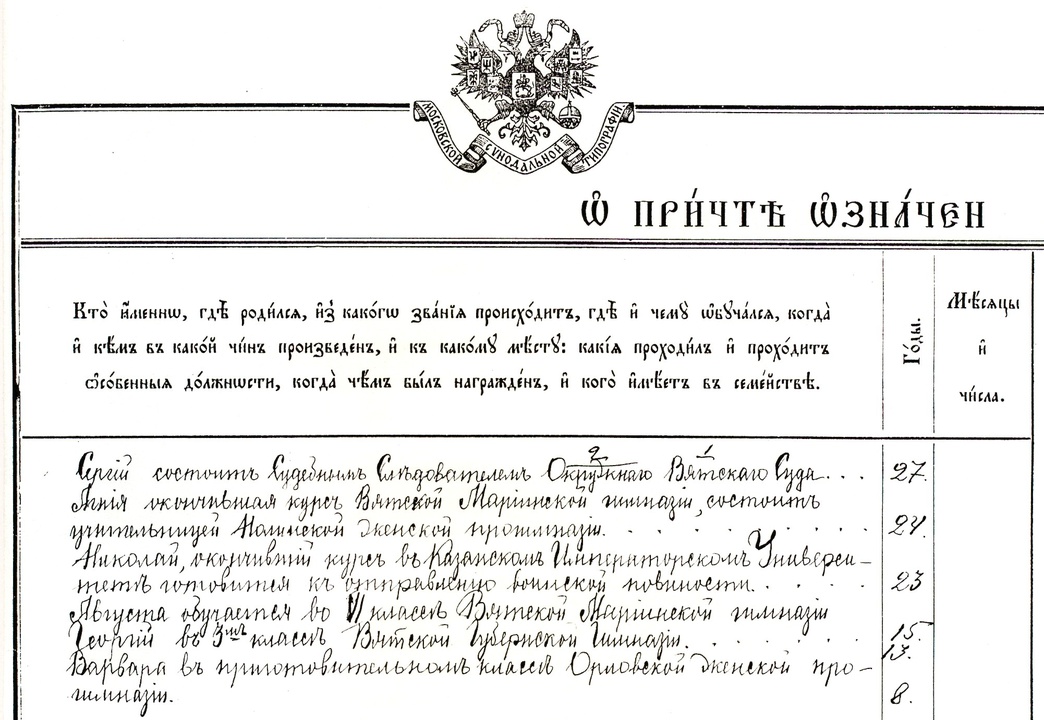 МОСКОВСКОЙ СУНОДАЛЬНОЙ ТИПОГРАФІИ
Ѡ ПРИ́ЧТѢ Ѡ҆ЗНА́ЧЕН
Кто̀ и҆́менно, гдѣ̀ роди́лсѧ, и҆з̾ како́гѡ зва́нїѧ происхо́дитъ, гдѣ̀ и҆ чемꙋ̀ ѡ҆бꙋча́лсѧ, когда̀
и҆ кѣ́мъ въ како́й чи́нъ произведе́нъ, и҆ къ како́мꙋ мѣ́стꙋ: какі̑ѧ проходи́лъ и҆ прохо́дитъ
ѻ҆со́бенныѧ до́лжнѡсти, когда̀ чѣ́мъ бы́лъ награжде́нъ, и҆ кого̀ и҆мѣ́етъ въ семе́йствѣ.
Го́ды.
Мѣ́сѧцы
и҆
чи́сла.
2 1
Сергій состоитъ Судебнымъ Слѣдователемъ Окружнаго Вятскаго Суда... 27.
окончившая курсъ Вятской Маріинской гимназіи, состоитъ
учительницей Нолинской женской прогимназіи. 24.
Николай, окончившій курсъ въ Казанскомъ Императорскомъ Универси-
тетѣ готовится къ отправленію воинской повиности. 23
Августа обучается во VI классѣ Вятской Маріинской гимназіи 15.
Георгій въ 3мъ классѣ Вятской Губернской Гимназіи. 13.
Варвара въ приготовительномъ классѣ Орловской женской про-
гимназіи. 8.